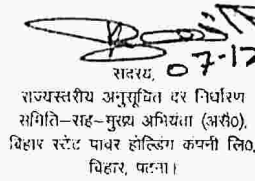 07-12
सदस्य,
राज्यस्तरीय अनुसूचित दर निर्धारण
समिति-सह-मुख्य अभियंता (असै०),
बिहार स्टेट पावर होल्डिंग कंपनी लि०,
बिहार, पटना।